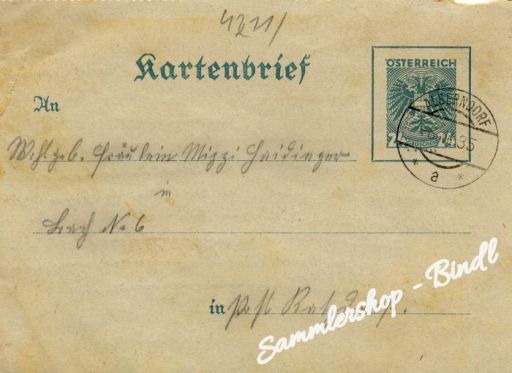 4221/
Kartenbrief
ÖSTERREICH
24 24
GROSCHEN
An
Wohlgeb. Fräulein Mizzi Haidinger
in
Bach No 6
in Post
Sammlershop - Bindl
a